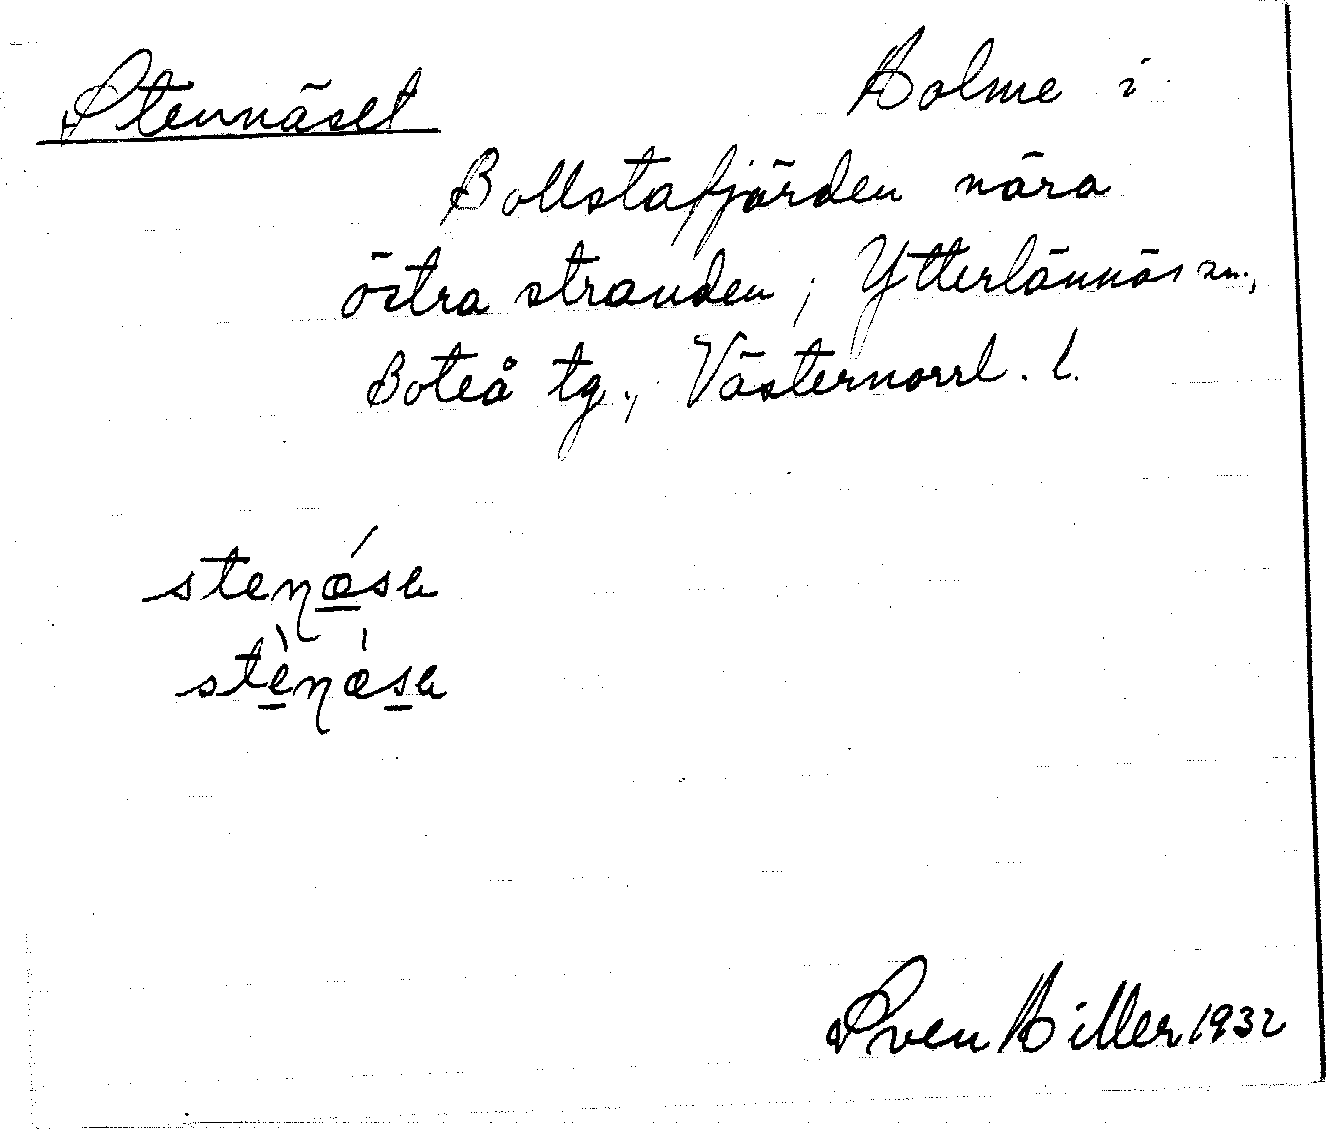 Stennäset Holme i
Bollstafjärden nära
östra stranden; Ytterlännäs sn.,
Boteå tg., Västernorrl. l.
Sven Hiller 1932